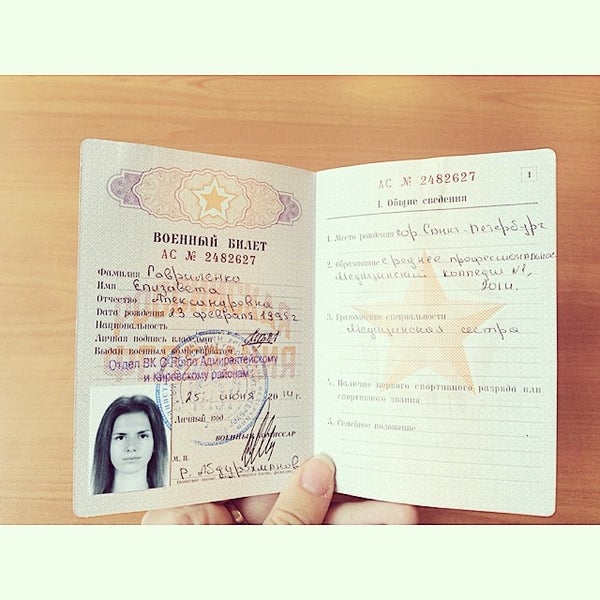 ВОЕННЫЙ БИЛЕТ
АС № 2482627
Фамилия Гавриленко
Имя Елизавета
Отчество Александровна
Дата рождения 23 февраля 1995г
Национальность
Личная подпись владельца
Выдан военным комиссариатом
Отдел ВК СПб по Адмиралтейскому
и Кировскому районам
"25" июня 2014г.
Личный код
ВОЕННЫЙ КОМИССАР
М. П.
Р. Абдурахманов
АС № 2482627
1
I. Общие сведения
1. Место рождения гор. Санкт-Петербург
2. Образование среднее профессиональное
Медицинский колледж №1,
2014.
3. Гражданские специальности
Медицинская сестра
4. Наличие первого спортивного разряда или
спортивного звания
5. Семейное положение